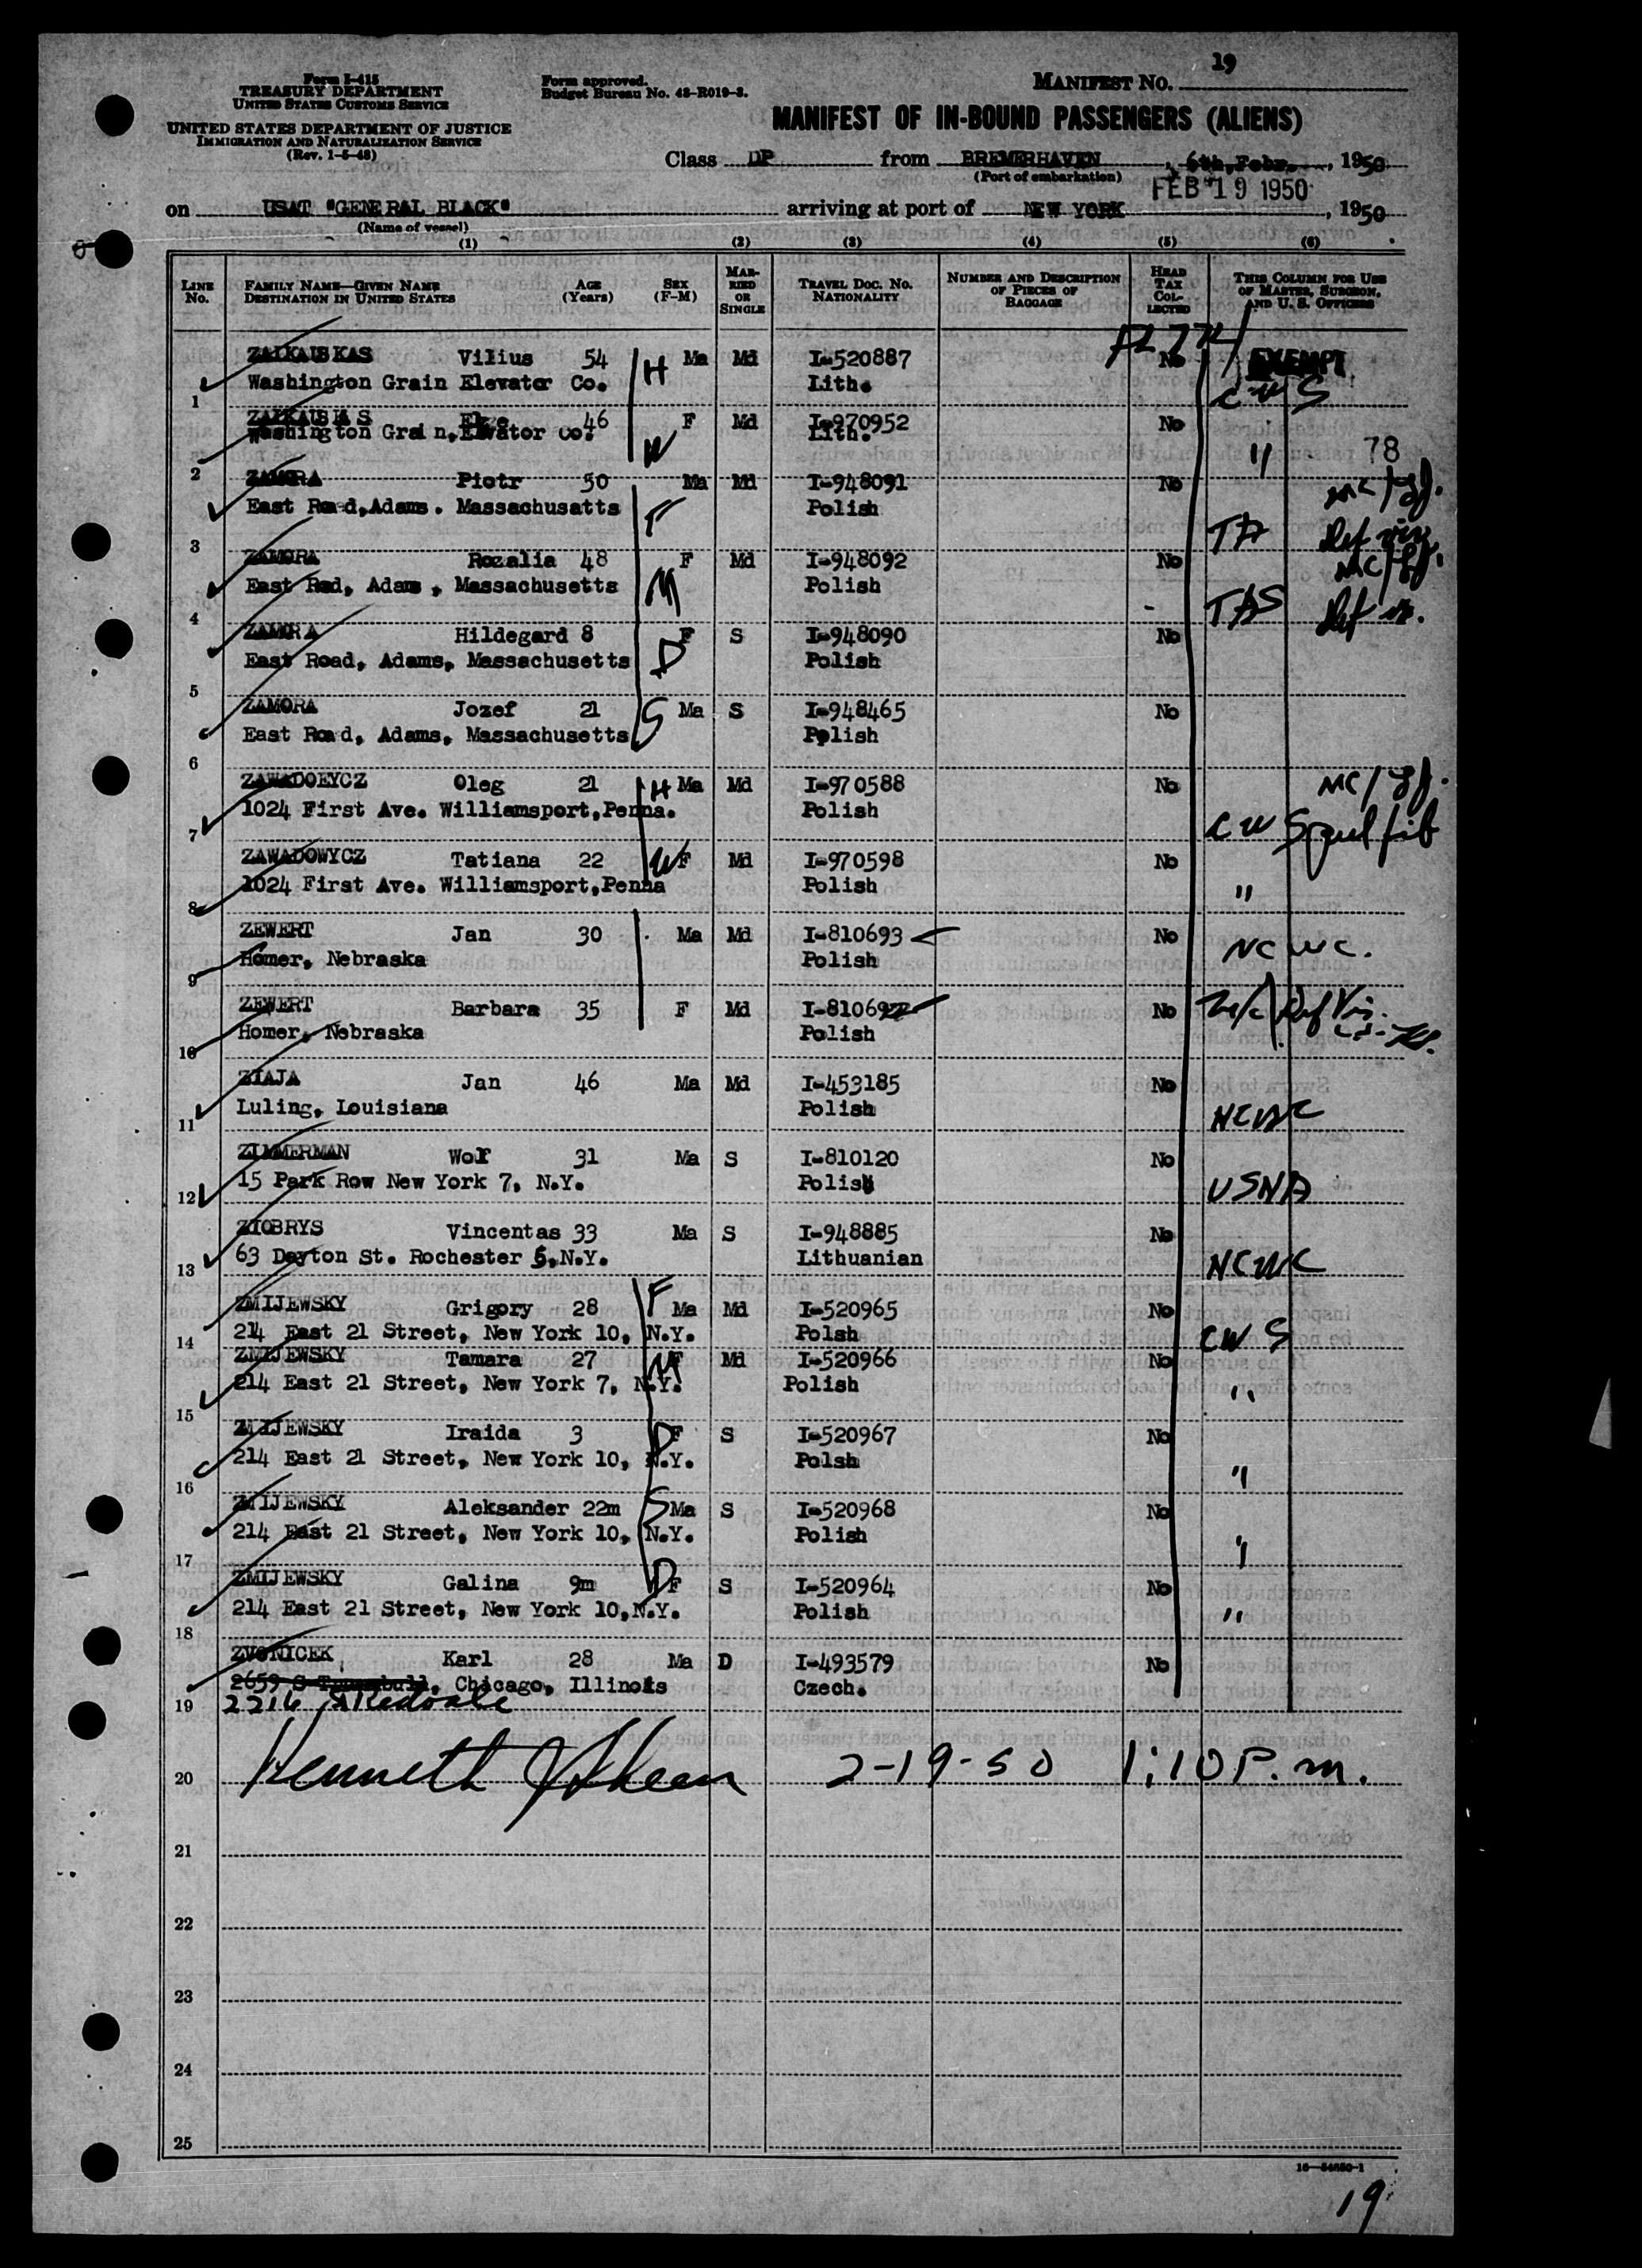 19
Form I-415
TREASURY DEPARTMENT
UNITED STATES CUSTOMS SERVICE
UNITED STATES DEPARTMENT OF JUSTICE
IMMIGRATION AND NATURALIZATION SERVICE
(Rev. 1-5-48)
Form approved.
Budget Bureau No. 43-R019-3.
MANIFEST No.
MANIFEST OF IN-BOUND PASSENGERS (ALIENS)
Class DP from BREMERHAVEN, 6th, Febr., 1950
(Port of embarkation)
FEB 19 1950
on USAT "GENERAL BLACK" arriving at port of NEW YORK, 1950
(Name of vessel)
(1) (2) (3) (4) (5) (6)
LINE No. FAMILY NAME—GIVEN NAME DESTINATION IN UNITED STATES AGE (Years) SEX (F-M) MARRIED OR SINGLE TRAVEL DOC. NO. NATIONALITY NUMBER AND DESCRIPTION OF PIECES OF BAGGAGE HEAD TAX COLLECTED THIS COLUMN FOR USE OF MASTER, SURGEON, AND U. S. OFFICERS
PL 774
ZALKAUSKAS Vilius 54 H Ma Md I-520887 No EXEMPT
Washington Grain Elevator Co. Lith. CWS
1
ZALKAUSKAS 46 F Md I-970952 No
Washington Grain, Elvator Co. W Lith. " 78
2
ZAMORA Piotr 50 Ma Md I-948091 No
East Road, Adams. Massachusatts F Polish
3
ZAMORA Rozalia 48 F Md I-948092 No
East Rad, Adam , Massachusetts M Polish
4
ZAMORA Hildegard 8 F S I-948090 No
East Road, Adams, Massachusetts D Polish
5
ZAMORA Jozef 21 S Ma S I-948465 No
East Road, Adams, Massachusetts Polish
6
ZAWADOEYCZ Oleg 21 H Ma Md I-970588 No
1024 First Ave. Williamsport,Penna. Polish CWS
7
ZAWADOWYCZ Tatiana 22 W F Md I-970598 No
1024 First Ave. Williamsport,Penna Polish "
8
ZEWERT Jan 30 Ma Md I-810693 No
Homer, Nebraska Polish NCWC.
9
ZEWERT Barbara 35 F Md I-81069 No
Homer, Nebraska Polish
10
ZIAJA Jan 46 Ma Md I-453185 No
Luling, Louisiana Polish NCWC
11
ZIMMERMAN Wolf 31 Ma S I-810120 No
15 Park Row New York 7, N.Y. Polish USNA
12
ZIOBRYS Vincentas 33 Ma S I-948885 No
63 Dayton St. Rochester 5,N.Y. Lithuanian NCWC
13
ZMIJEWSKY Grigory 28 F Ma Md I-520965 No
214 East 21 Street, New York 10, N.Y. Polsh CWS
14
ZMIJEWSKY Tamara 27 M F Md I-520966 No
214 East 21 Street, New York 7, N.Y. Polish "
15
ZMIJEWSKY Iraida 3 D F S I-520967 No
214 East 21 Street, New York 10, N.Y. Polsh "
16
ZMIJEWSKY Aleksander 22m S Ma S I-520968 No
214 East 21 Street, New York 10, N.Y. Polish "
17
ZMIJEWSKY Galina 9m D F S I-520964 No
214 East 21 Street, New York 10,N.Y. Polish "
18
ZVONICEK Karl 28 Ma D I-493579 No
2659 S , Chicago, Illinois Czech.
19 2216
20 Kenneth 2-19-50 1:10 P.m.
21
22
23
24
25
19